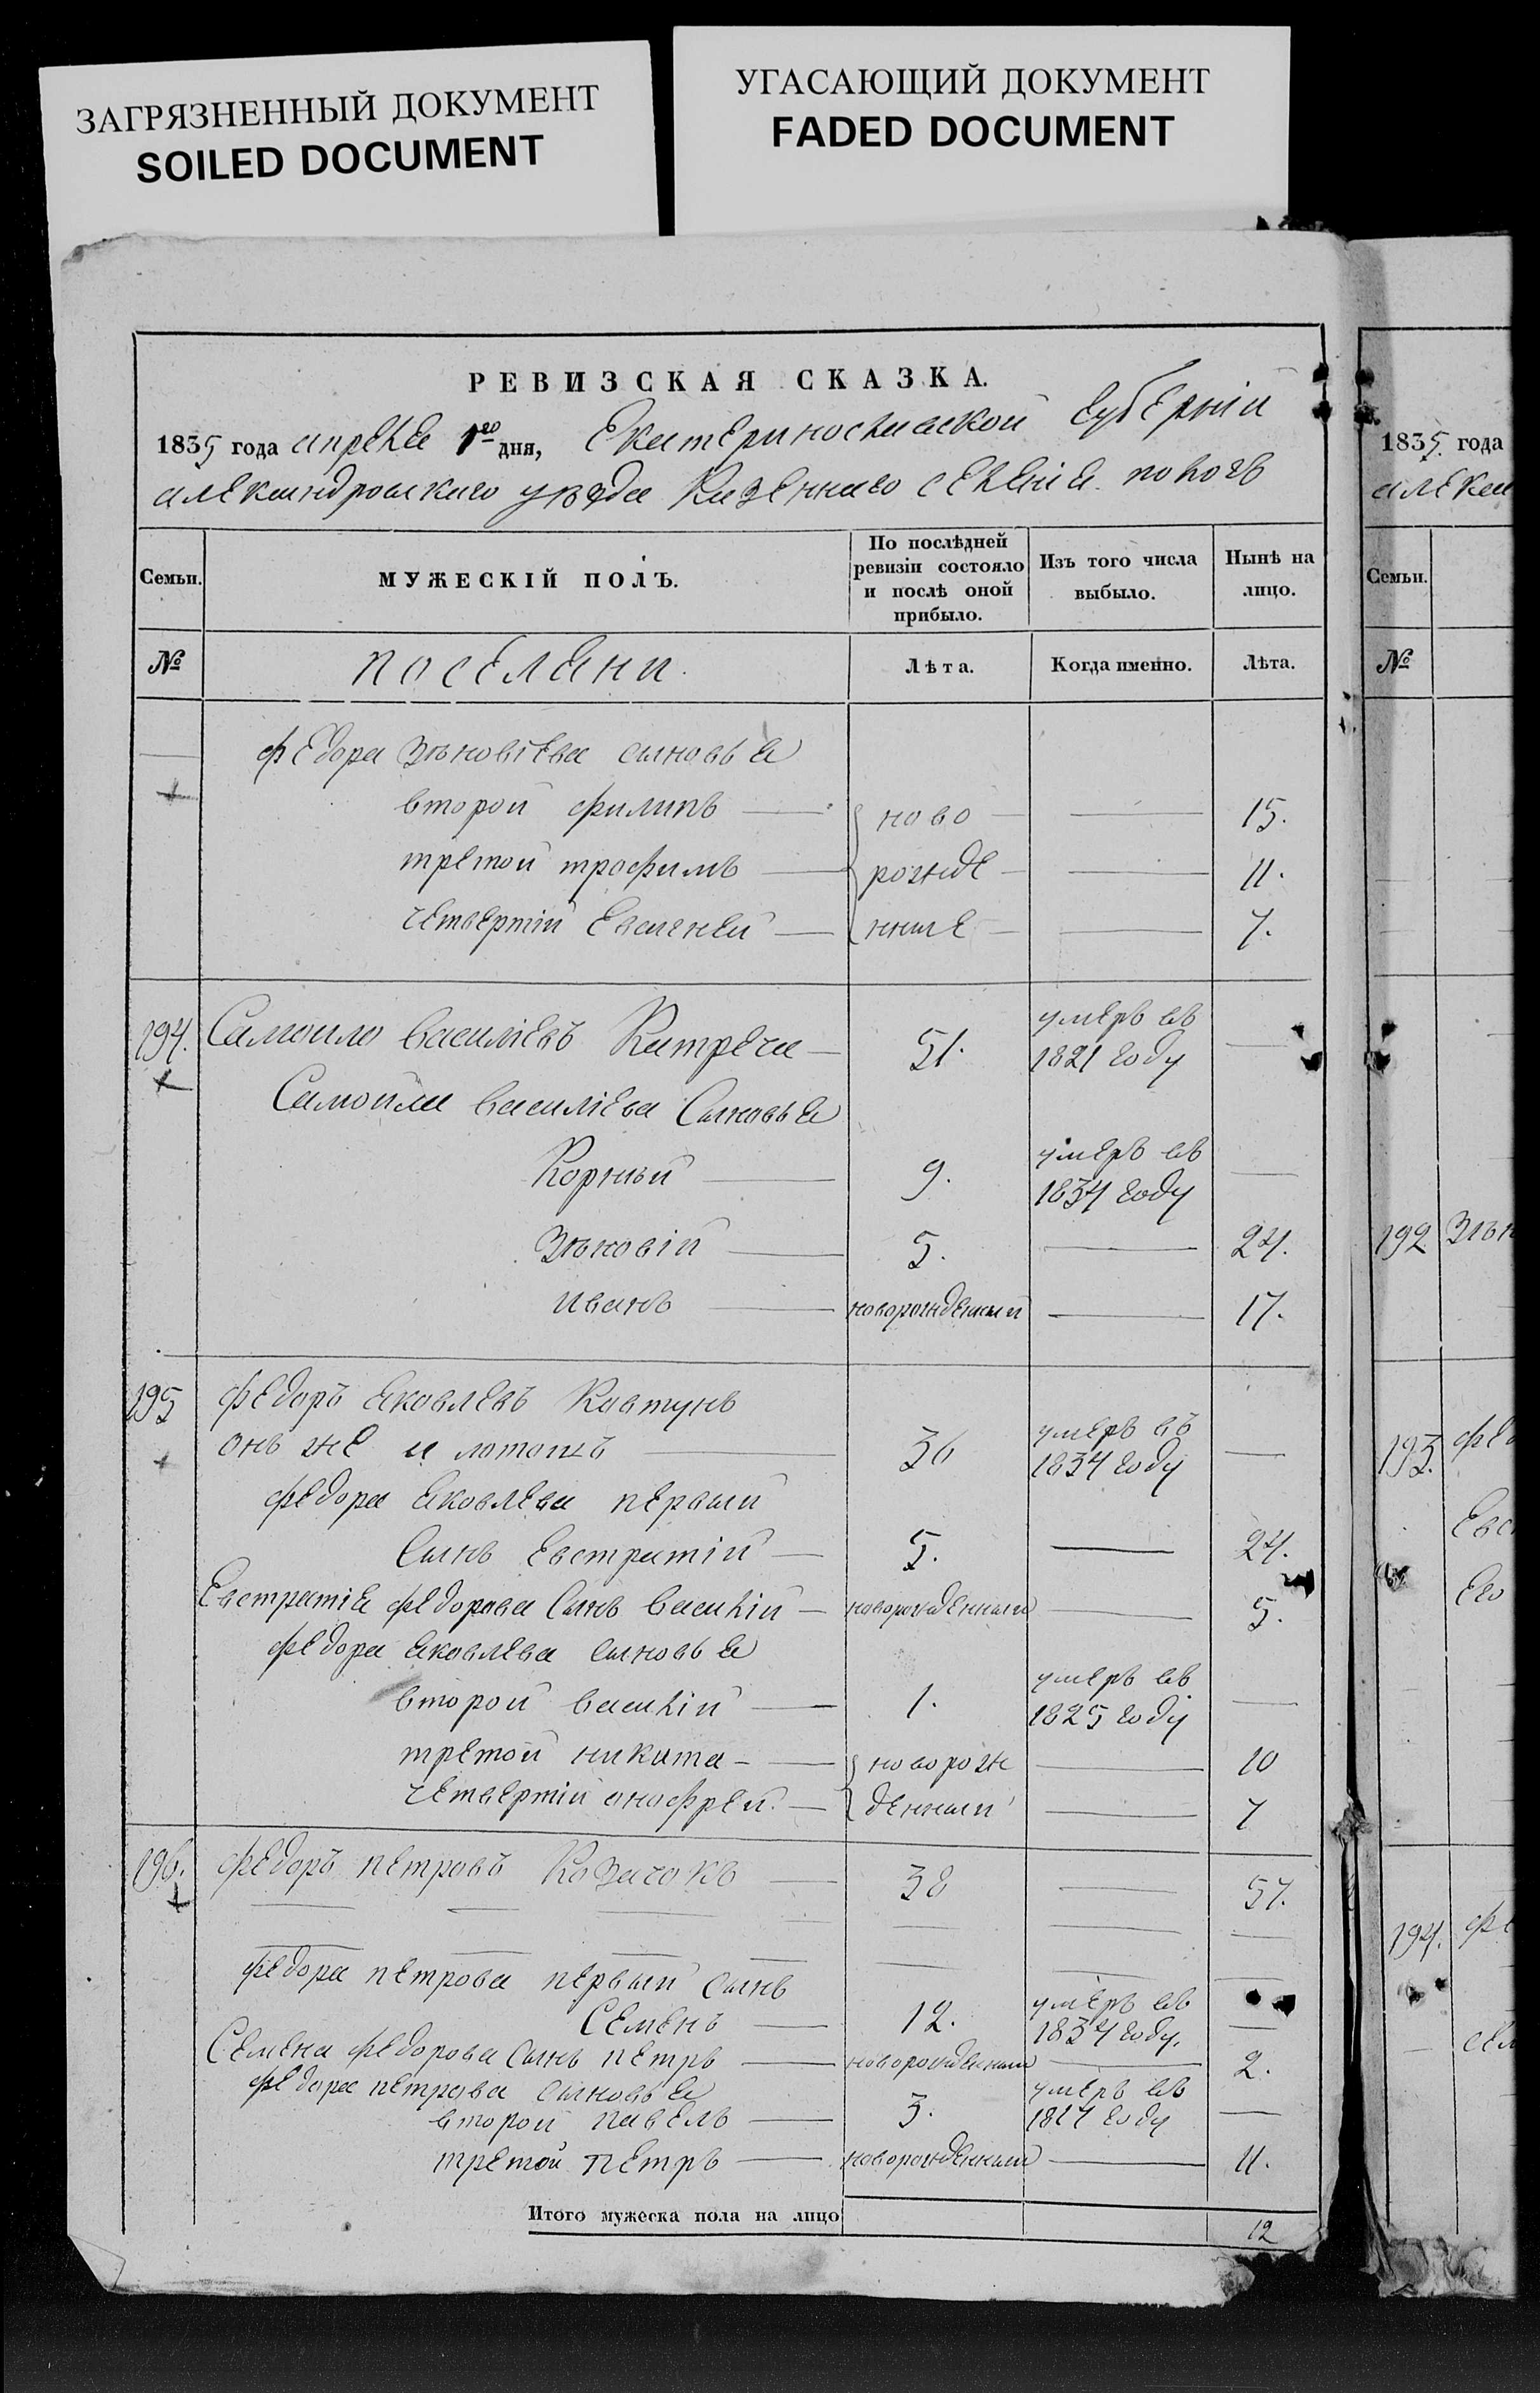 ЗАГРЯЗНЕННЫЙ ДОКУМЕНТ
SOILED DOCUMENT
УГАСАЮЩИЙ ДОКУМЕНТ
FADED DOCUMENT
РЕВИЗСКАЯ СКАЗКА.
1835 года апреля 1го дня, Екатеринославской губерніи
александровскаго уезда Казеннаго селенія пологъ
Семьи. МУЖЕСКІЙ ПОЛЪ. По послѣдней ревизіи состояло и послѣ оной прибыло. Изъ того числа выбыло. Нынѣ на лицо.
№ поселяни. Лѣта. Когда именно. Лѣта.
федора Зѣновіева сыновья
второй филипъ — ново — 15.
третой трофимъ — рожде — 11.
четвертій Евсигней — нные — 7.
194. Самойло василіевъ Китреча — 51. умеръ въ 1821 году —
Самойла василіева Сыновья
Корный — 9. умеръ въ 1834 году —
Зѣновій — 5. — 24.
иванъ — новорожденный — 17.
195 федоръ яковлевъ Ковтунъ
онъ же и лотошъ — 36 умеръ въ 1834 году —
федора яковлева первый
Сынъ Евстратій — 5. — 24.
Евстратія федорова Сынъ василій — новорожденный — 5.
федора яковлева сыновья
второй василій — 1. умеръ въ 1825 году —
третой никита — новорож — 10
четвертій онофрей. — денный — 7
196. федоръ петровъ Козачокъ — 38 — 57.
федора петрова первый сынъ
Семенъ — 12. умеръ въ 1834 году. —
Семена федорова Сынъ петръ — новорожденный — 2.
федора петрова сыновья
второй павелъ — 3. умеръ въ 1817 году —
третой петръ — новорожденный — 11.
Итого мужеска пола на лицо 12
1835 года
алекса
Семьи.
№
192 Зѣн
193. фед
Евс
Его
194. фе
сем